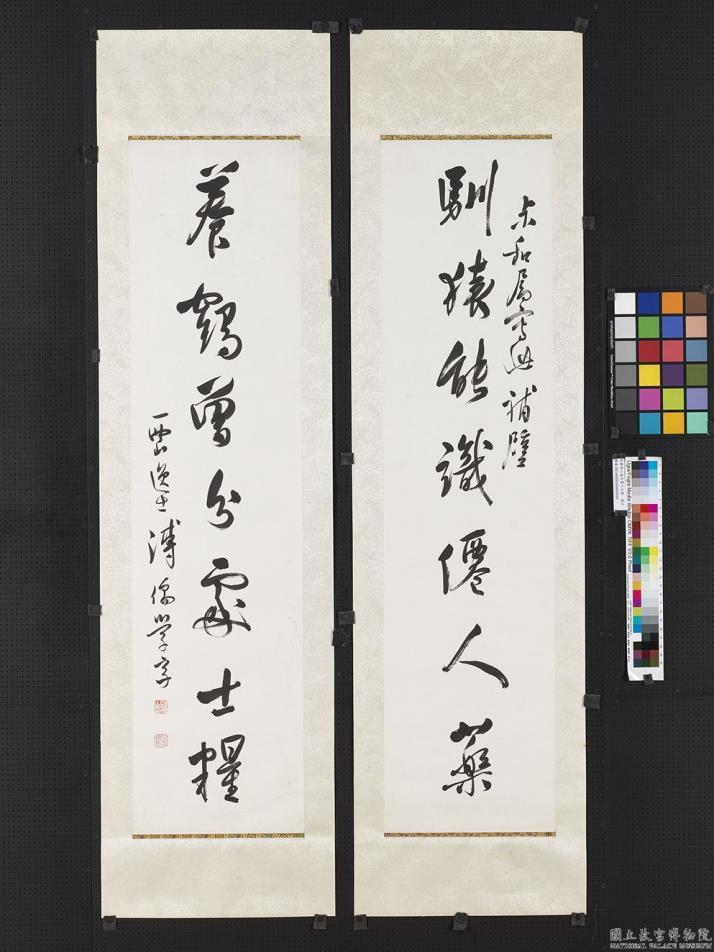 馴猿能識僊人藥
補壁
養鶴曾分處士糧
西山逸士溥儒
國立故宮博物院
NATIONAL PALACE MUSEUM